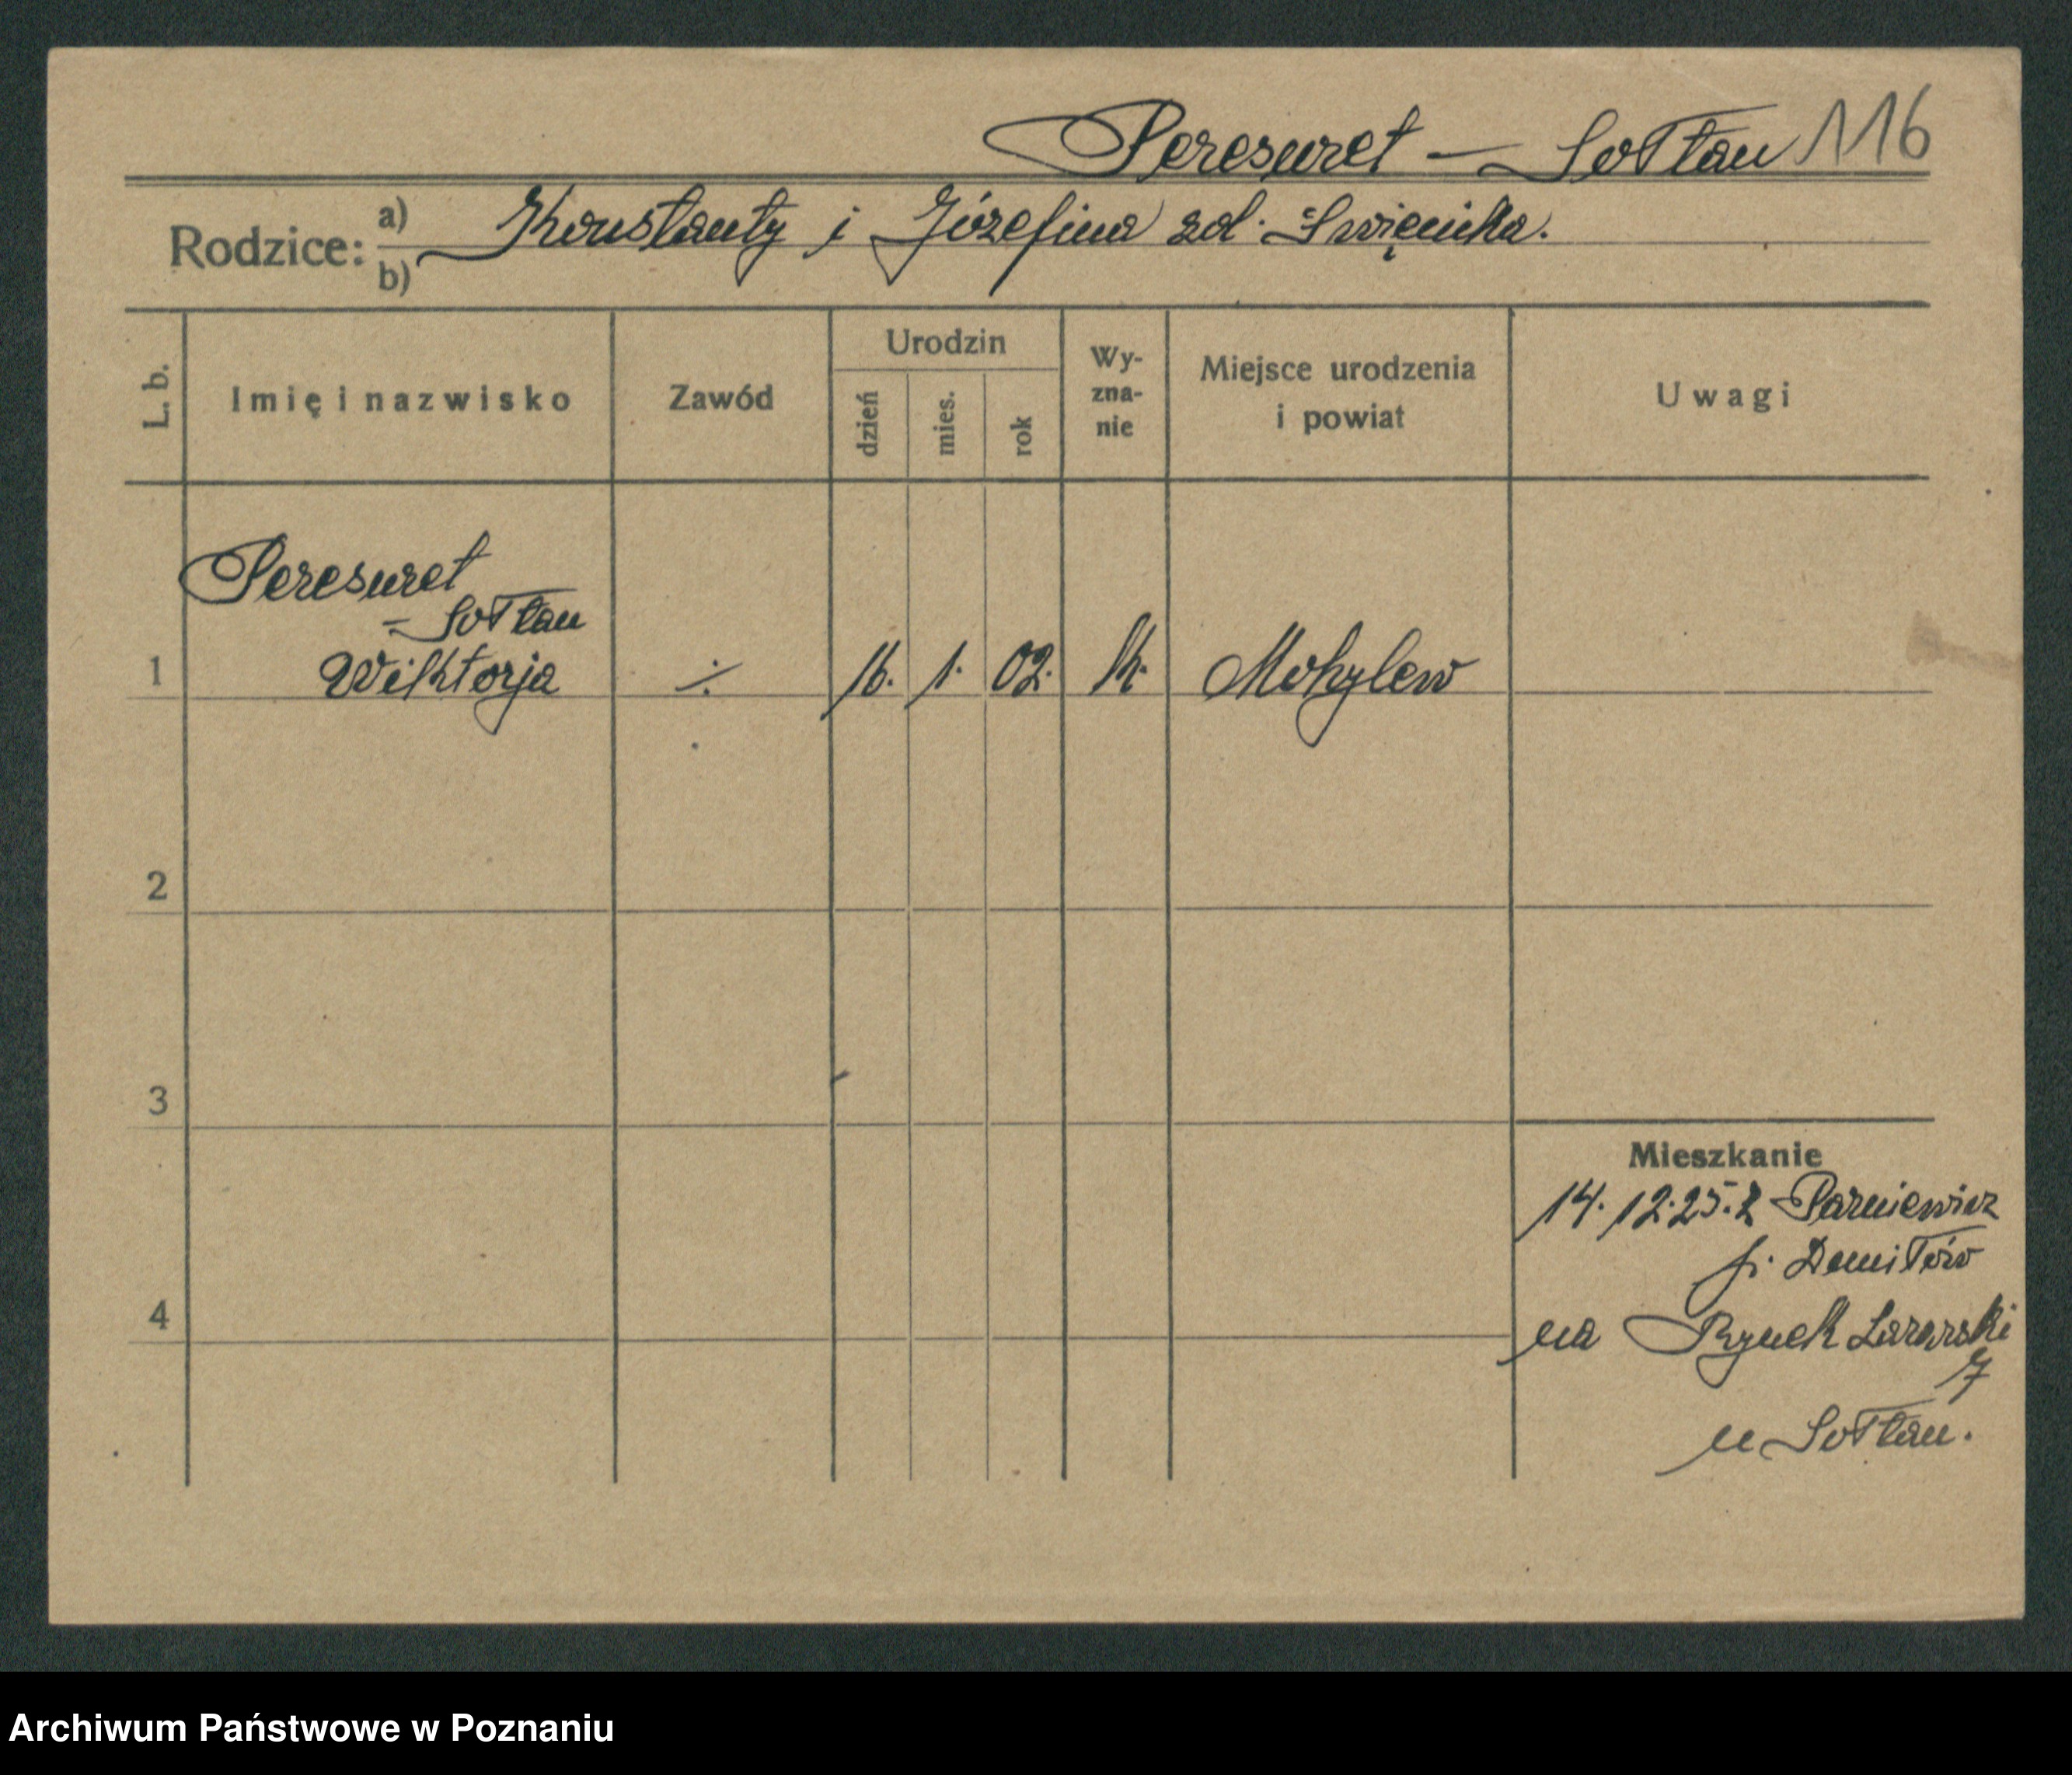 Pereswiet — Sołtan 116
Rodzice: a) Konstanty i Józefina zd. Święcicka.
b)
L. b. Imię i nazwisko Zawód Urodzin dzień mies. rok Wy-zna-nie Miejsce urodzenia i powiat Uwagi
Pereswiet
- Sołtan
1 Wiktorja ÷ 16. 1. 02. k. Mohylew
2
3
Mieszkanie
14. 12. 25. z
na Rynek Łazarski
4
7
u Sołtan.
Archiwum Państwowe w Poznaniu